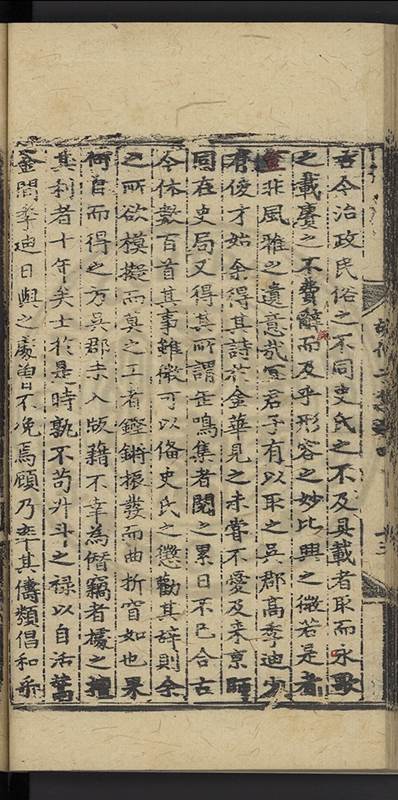 古今治政民俗之不同史氏之不及具載者取而永歌
之載賡之不費辭而及乎形容之妙比興之微若是者
豈非風雅之遺意哉宜君子有以取之吳郡高季迪少
有俊才始余得其詩於金華見之未嘗不愛及来京師
同在史局又得其所謂缶鳴集者閱之累日不已合古
今体數百首其事雖微可以俻史氏之懲勸其辞則余
之所欲模擬而莫之工者鏗鏘振發而曲折窅如也果
何自而得之方吳郡未入版籍不幸為僭竊者據之擅
其利者十年矣士於是時孰不苟升斗之禄以自活
金閶季迪日與之處曽不浼焉顧乃率其儔類倡和乎